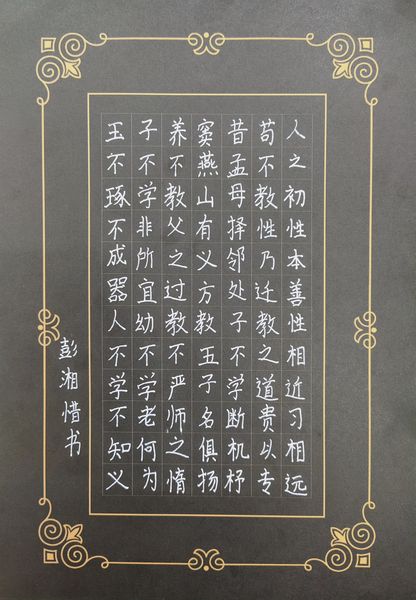 人之初性本善性相近习相远
苟不教性乃迁教之道贵以专
昔孟母择邻处子不学断机杼
窦燕山有义方教五子名俱扬
养不教父之过教不严师之惰
子不学非所宜幼不学老何为
玉不琢不成器人不学不知义
彭湘惜书